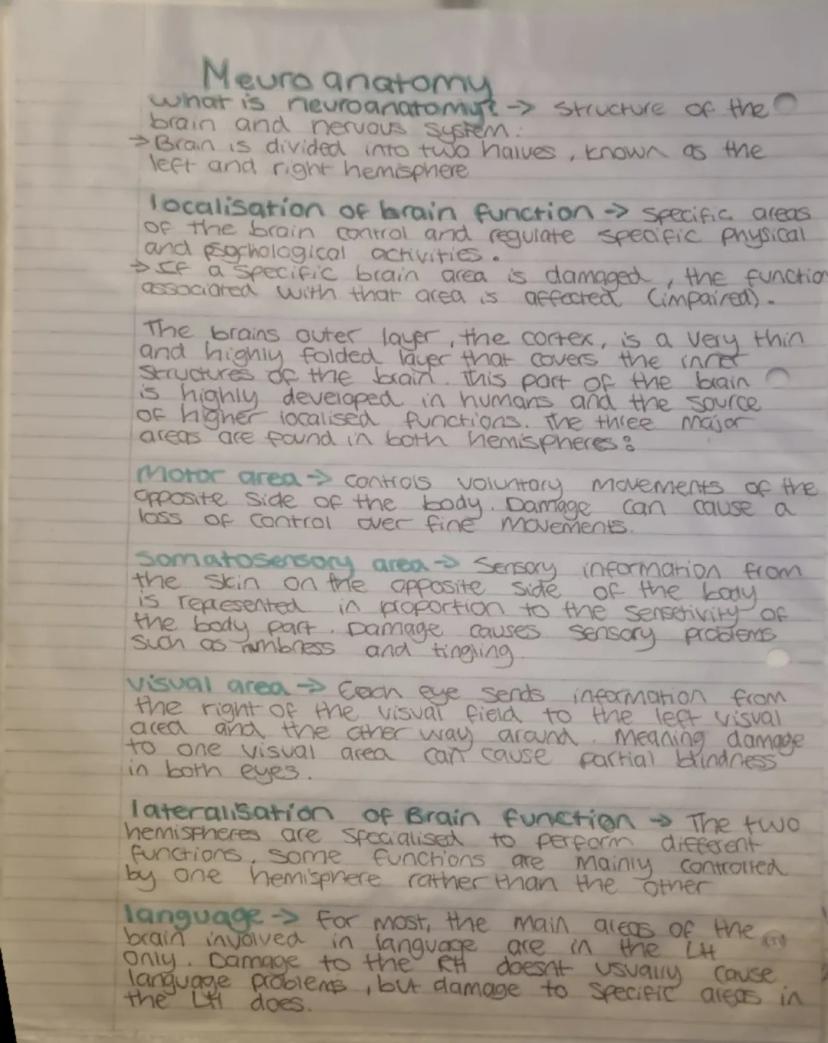 Neuroanatomy
What is neuroanatomy? -> structure of the
brain and nervous system.
-> Brain is divided into two halves, known as the
left and right hemisphere
localisation of brain function -> specific areas
of the brain control and regulate specific physical
and psychological activities.
-> If a specific brain area is damaged, the function
associated with that area is affected (impaired).
The brains outer layer, the cortex, is a very thin
and highly folded layer that covers the inner
structures of the brain. This part of the brain
is highly developed in humans and the source
of higher localised functions. The three major
areas are found in both hemispheres:
Motor area -> controls voluntary movements of the
opposite side of the body. Damage can cause a
loss of control over fine movements.
Somatosensory area -> Sensory information from
the skin on the opposite side of the body
is represented in proportion to the sensetivity of
the body part. Damage causes sensory problems
such as numbness and tingling
visual area -> Each eye sends information from
the right of the visual field to the left visual
area and the other way around. Meaning damage
to one visual area can cause partial blindness
in both eyes.
lateralisation of Brain function -> The two
hemispheres are specialised to perform different
functions, some functions are mainly controlled
by one hemisphere rather than the other
language -> for most, the main areas of the
brain involved in language are in the LH
only. Damage to the RH doesnt usually cause
language problems, but damage to specific areas in
the LH does.